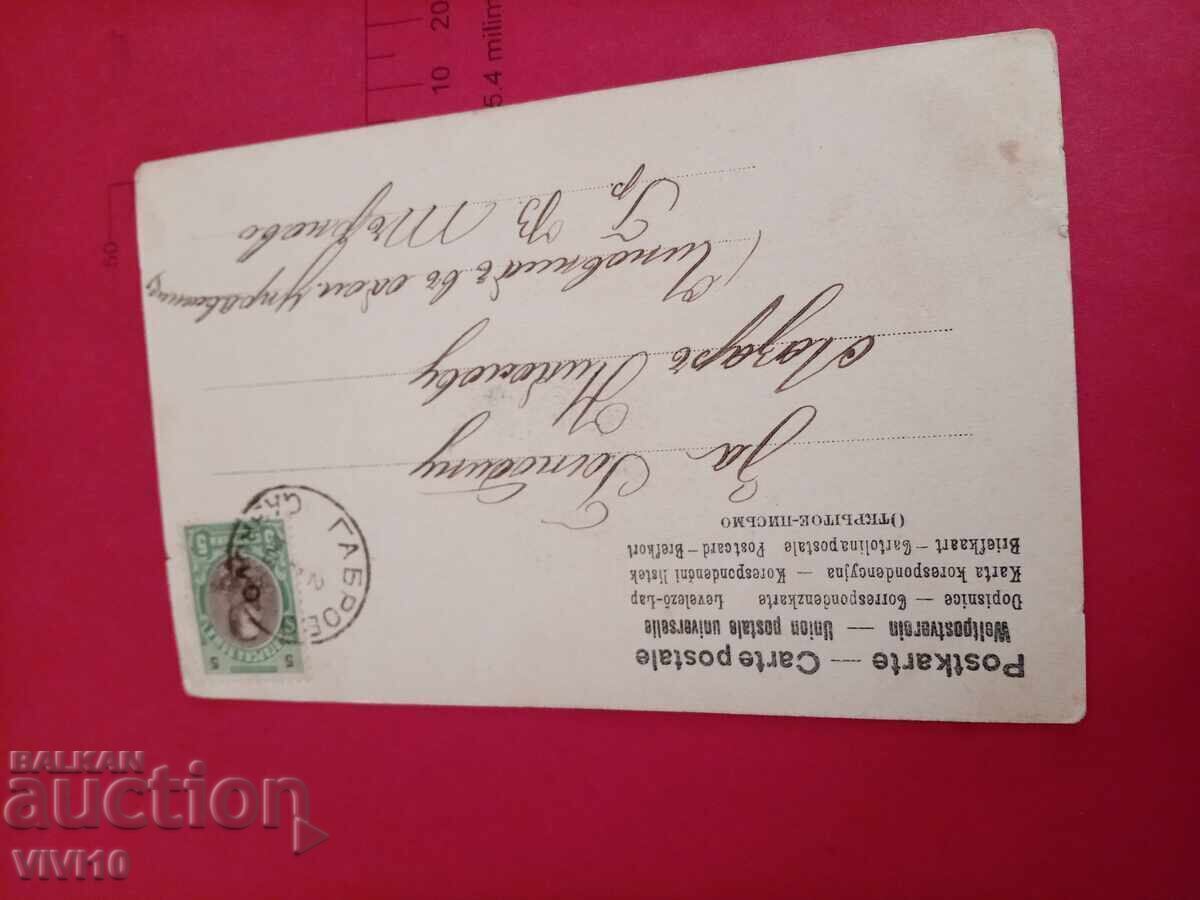 Postkarte — Carte postale
Weltpostverein — Union postale universelle
Dopisnice — Correspondenzkarte Levelező-Lap
Karta korespondencyjna — Korespondenčni listek
Briefkaart — Cartolina postale Postcard — Brefkort
ОТКРЫТОЕ-ПИСЬМО
За Господину
Лазаръ Николову
(Чиновникъ въ управление
Гр. В Търново
ГАБРОВ
5 5
10 20
50
5.4 milim
BALKAN
auction
VIVI10